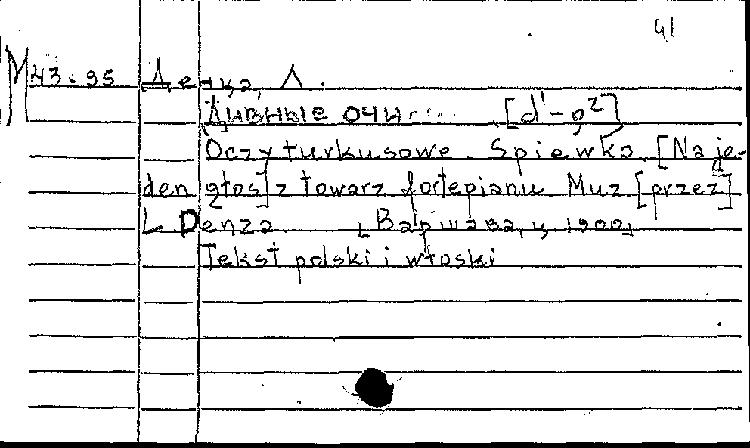 41
M 43-95 Денца, Л.
Дивные очи..... [d¹-g²]
Oczy turkusowe. Śpiewka [Na je-
den głos] z towarz fortepianu Muz [przez]
L Denza. [Варшава, ц, 1900]
Tekst polski i włoski